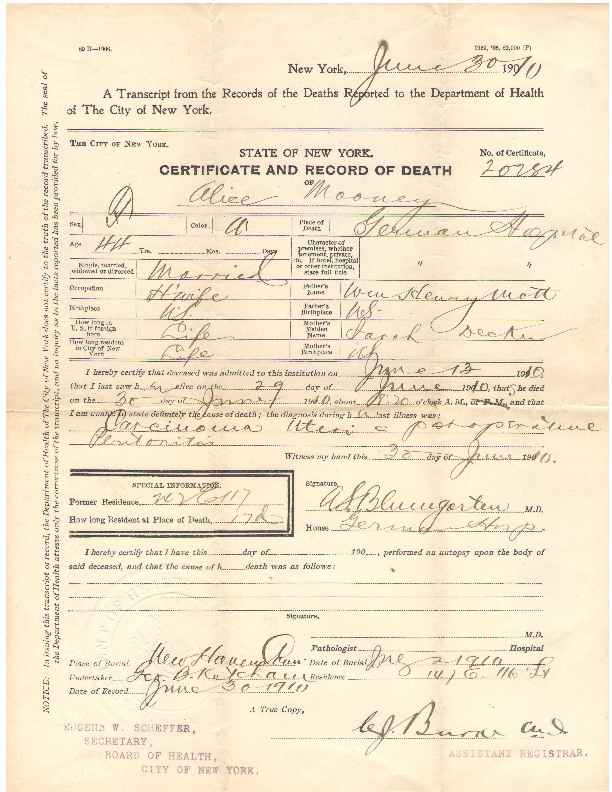 80 H—1906.
New York, June 30 1910
A Transcript from the Records of the Deaths Reported to the Department of Health
of The City of New York.
THE CITY OF NEW YORK.
STATE OF NEW YORK.
No. of Certificate,
CERTIFICATE AND RECORD OF DEATH
20284
OF
Alice Mooney
Sex
Color W
Place of Death German Hospital
Age 44 Yrs. Mos. Days
Character of premises, whether tenement, private, etc. If hotel, hospital or other institution, state full title " "
Single, married, widowed or divorced Married
Occupation H'wife
Father's Name Wm Henry Mott
Birthplace US
Father's Birthplace US
How long in U. S. if foreign born Life
Mother's Maiden Name Sarah Decker
How long resident in City of New York Life
Mother's Birthplace US
I hereby certify that deceased was admitted to this institution on June 13 1910,
that I last saw her alive on the 29 day of June 1910, that she died
on the 30 day of June 1910, about o'clock A. M., or P. M., and that
I am unable to state definitely the cause of death; the diagnosis during h last illness was:
Carcinoma Uteri c postoperative
Peritonitis
Witness my hand this 30 day of June 1910.
SPECIAL INFORMATION.
Former Residence,
How long Resident at Place of Death, 17d
Signature,
A S Blumgarten M.D.
House German Hosp.
I hereby certify that I have this day of 190 , performed an autopsy upon the body of
said deceased, and that the cause of h death was as follows:
Signature,
M.D.
Pathologist Hospital
Place of Burial New Haven Conn Date of Burial 2 1910
Undertaker Ketcham Residence E. 116 St
Date of Record June 30 1910
A True Copy,
EUGENE W. SCHEFFER,
SECRETARY,
BOARD OF HEALTH,
CITY OF NEW YORK.
Burke
ASSISTANT REGISTRAR.
NOTICE: In issuing this transcript of record, the Department of Health of The City of New York does not certify to the truth of the record transcribed. The seal of
the Department of Health attests only the correctness of the transcript, and no inquiry as to the facts reported has been provided for by law.